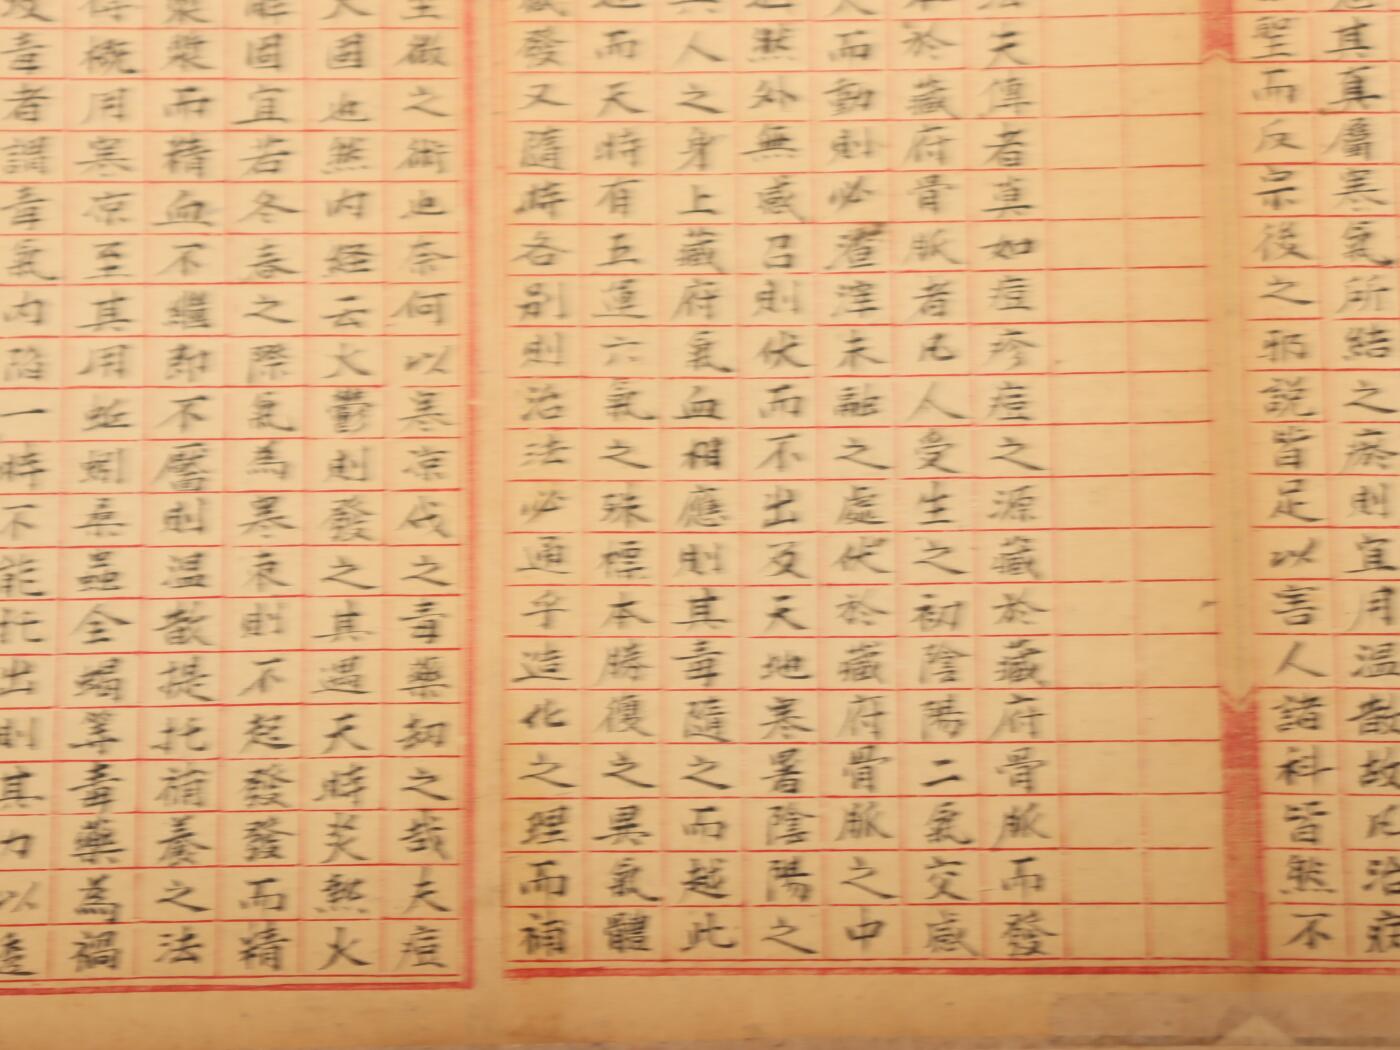 其真屬寒氣所結之病則宜用温散故凡治病
聖而反宗後之邪説皆足以害人諸科皆然不
夫傳者真如痘疹痘之源藏於藏府骨脈而發
於藏府骨脈者凡人受生之初陰陽二氣交感
而動則必渣滓未融之處伏於藏府骨脈之中
然外無感召則伏而不出及天地寒暑陰陽之
人之身上藏府氣血相應則其毒隨之而越此
而天時有五運六氣之殊標本勝復之異氣體
發又隨時各別則治法必通乎造化之理而補
做之術也奈何以寒凉伐之毒藥刼之哉夫痘
固也然内經云火鬱則發之其遇天時炎熱火
固宜若冬春之際氣為寒束則不起發發而精
漿而精血不繼即不靨則温散提托補養之法
概用寒凉至其用蚯蚓桑蟲全蝎等毒藥為禍
毒者謂毒氣内陷一時不能托出則其力以透